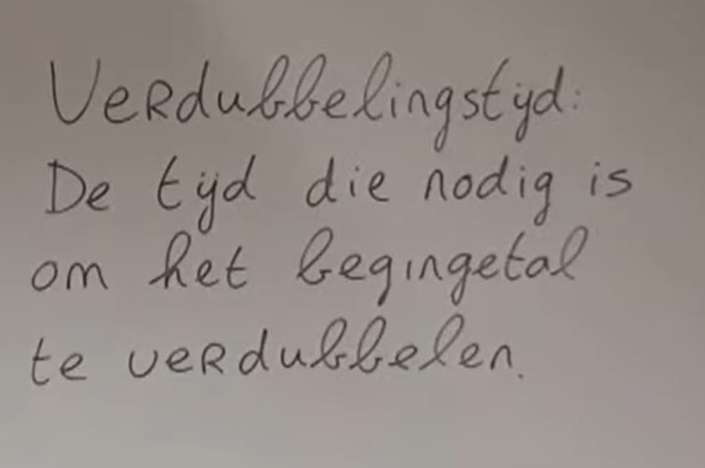 Verdubbelingstijd:
De tijd die nodig is
om het begingetal
te verdubbelen.